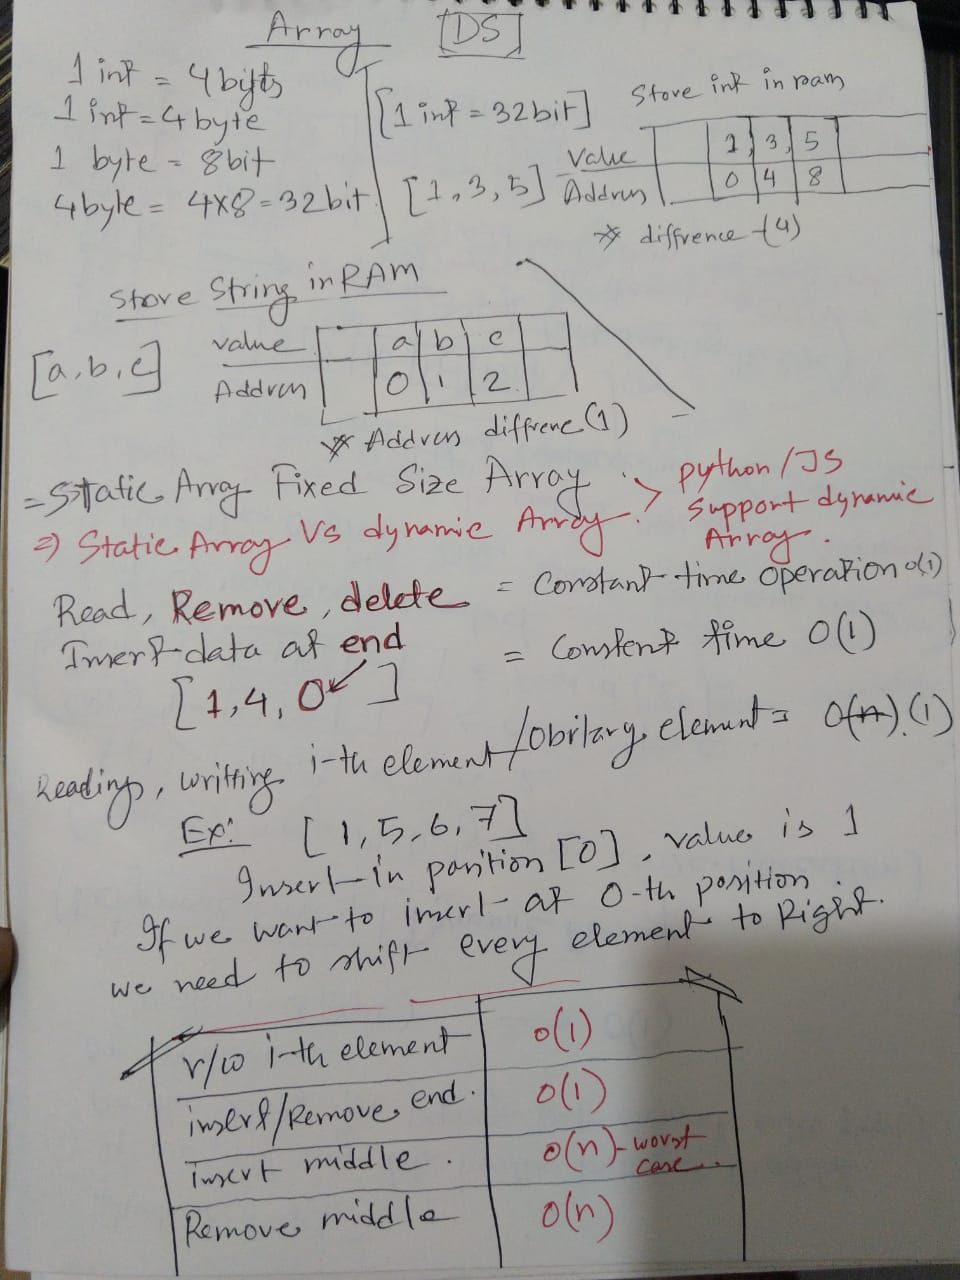 Array [DS]
1 int = 4 bytes
1 int = 4 byte
1 byte = 8 bit
4 byte = 4x8 = 32 bit
[1 int = 32 bit]
[1, 3, 5]
Store int in ram
Value 1 3 5
Address 0 4 8
** diffrence - (4)
Store String in RAM
[a, b, c]
value a b c
Address 0 1 2
** Address diffrene (1)
= Static Array Fixed Size Array
=> Static Array Vs dynamic Array. >
python / JS
support dynamic
Array.
Read, Remove, delete = Constant time operation o(1)
Insert data at end = Constent time O(1)
[1, 4, 0 ]
Reading, writting i-th element / obritary element = O(n).(1)
Ex: [1, 5, 6, 7]
Insert in position [0], value is 1
If we want to insert at 0-th position.
we need to shift every element to Right.
r/w i-th element o(1)
insert/Remove end. o(1)
insert middle. o(n) - worst case..
Remove middle o(n)